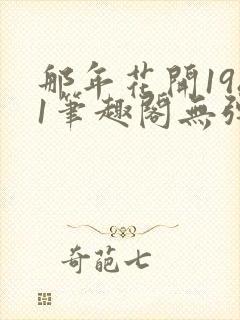 那年花開19
1筆趣閣無
奇葩七